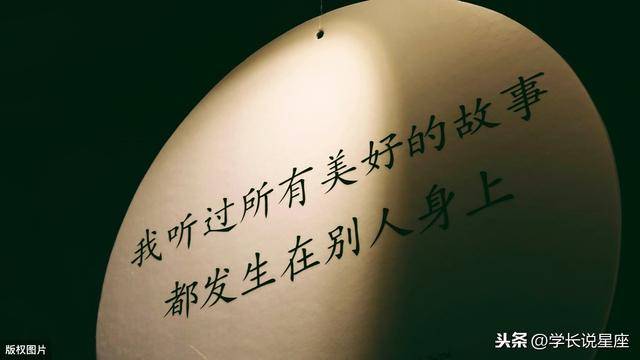 我听过所有美好的故事
都发生在别人身上
版权图片
头条@学长说星座